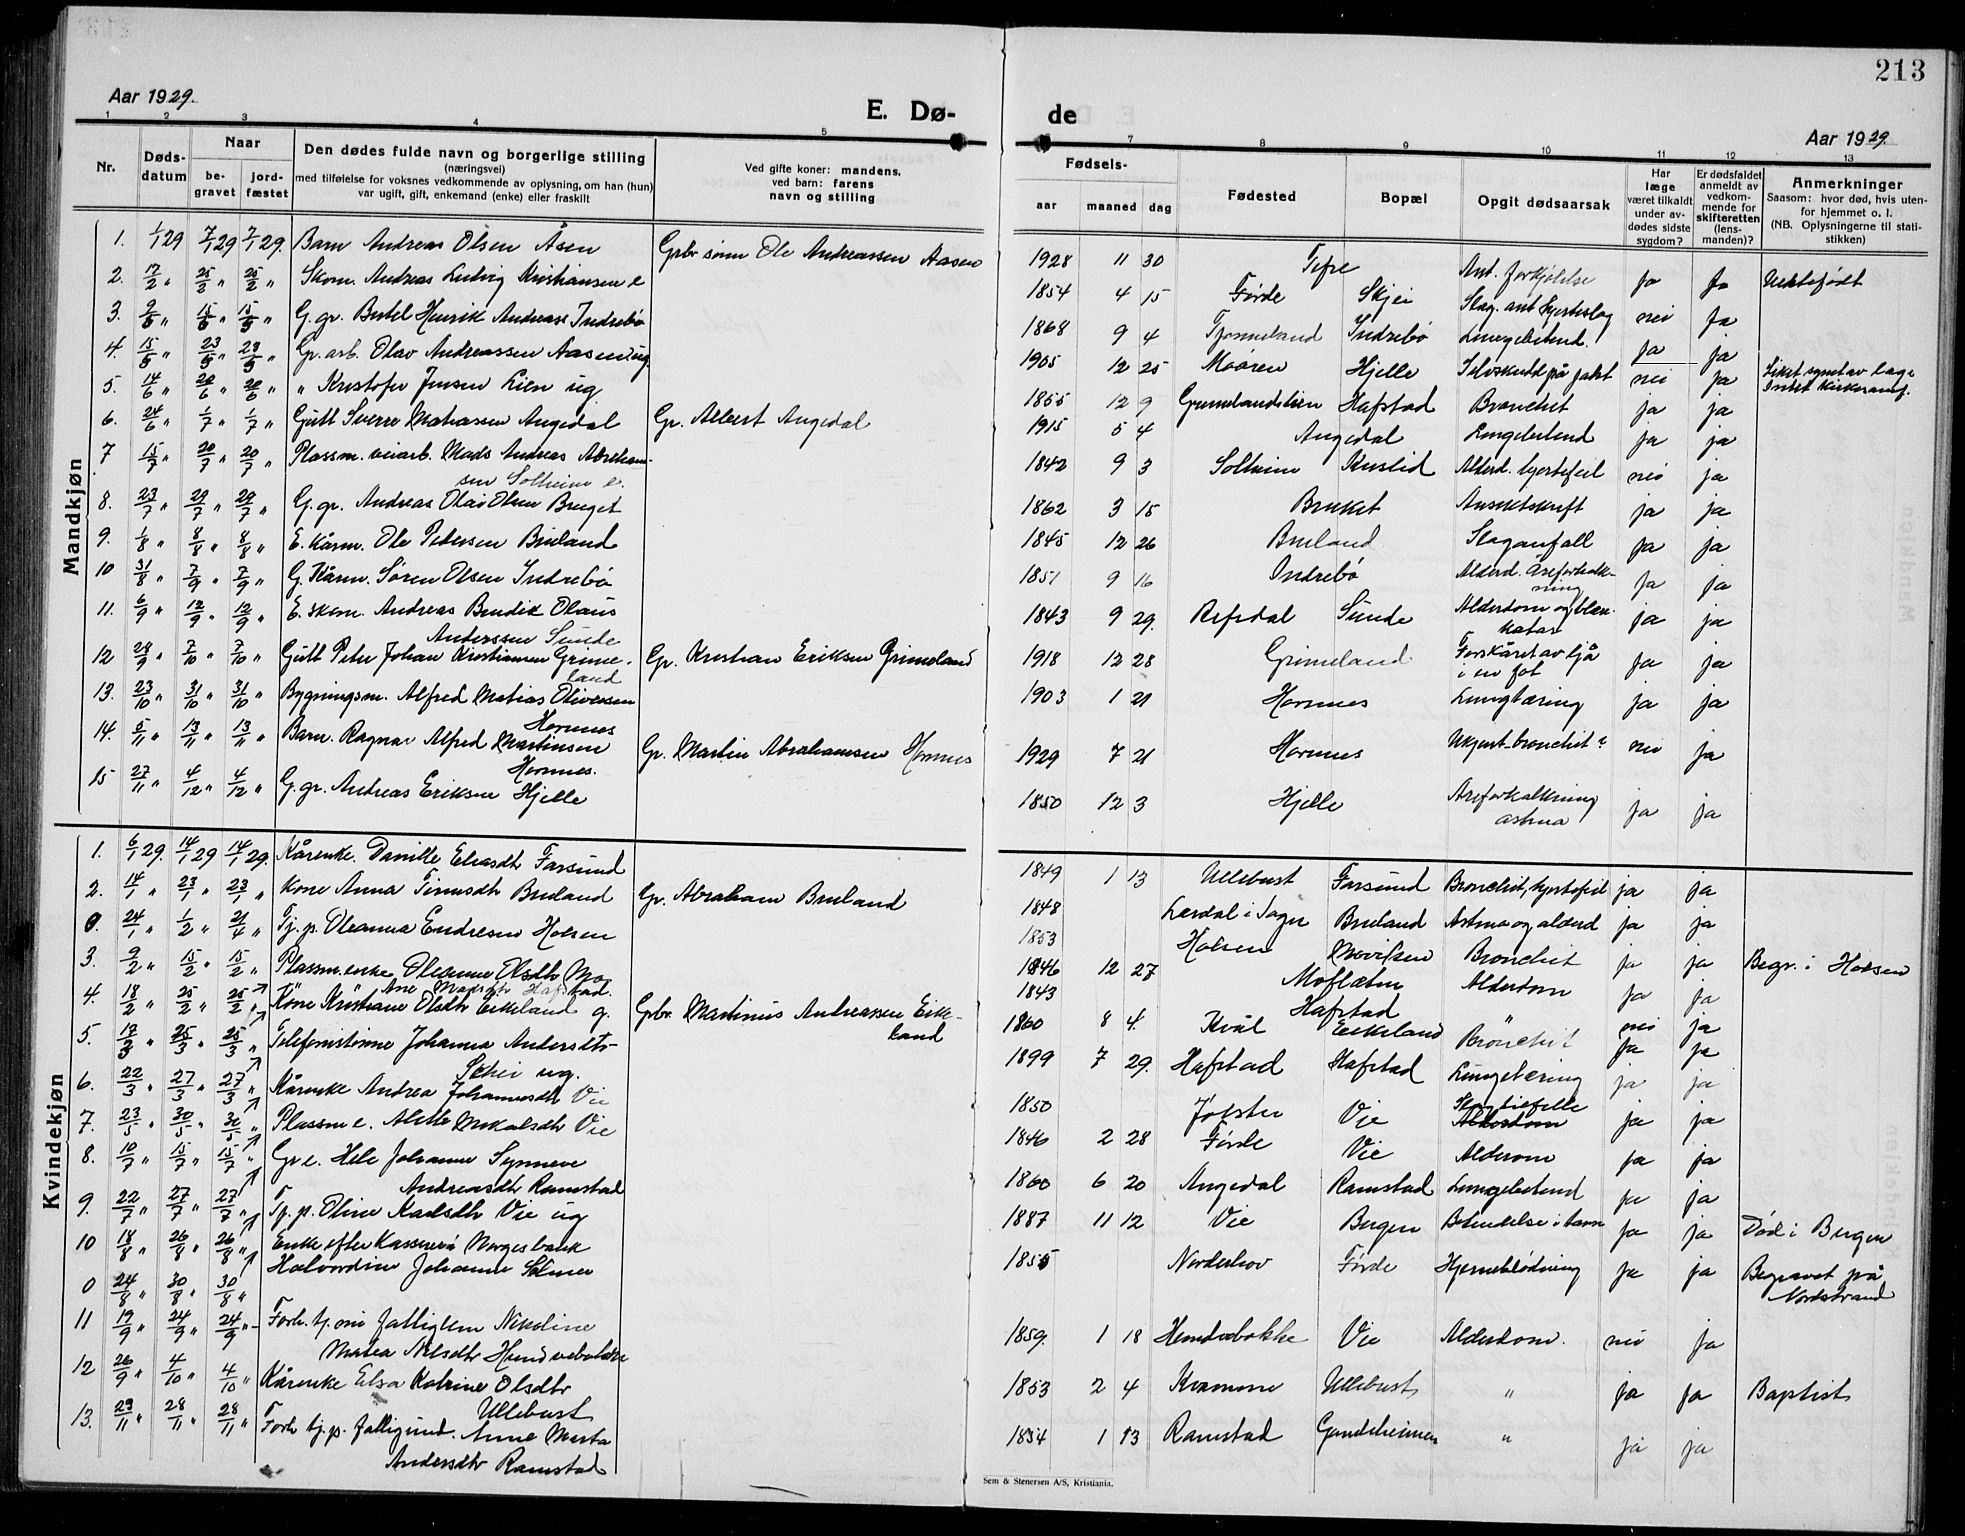 213
Aar 1929.
E. Dø-
de
Aar 1929.
1 2 3 4 5
7 8 9 10 11 12 13
Nr.
Døds-
datum
Naar
be-
gravet
jord-
fæstet
Den dødes fulde navn og borgerlige stilling
(næringsvei)
med tilføielse for voksnes vedkommende av oplysning, om han (hun)
var ugift, gift, enkemand (enke) eller fraskilt
Ved gifte koner: mandens,
ved barn: farens
navn og stilling
Fødsels-
aar maaned dag
Fødested
Bopæl
Opgit dødsaarsak
Har
læge
været tilkaldt
under av-
dødes sidste
sygdom?
Er dødsfaldet
anmeldt av
vedkom-
mende for
skifteretten
(lens-
manden)?
Anmerkninger
Saasom: hvor død, hvis uten-
for hjemmet o. l.
(NB. Oplysningerne til stati-
stikken)
Mandkjøn
1. 1/1 29 7/1 29 7/1 29. Barn Andreas Olsen Åsen Grbr sønn Ole Andreassen Aasen 1928 11 30 Tefre Ant. forkjølelse ja ja Uektefødt
2. 17/2 " 25/2 " 25/2 " Skom. Andreas Ludvig Kristiansen e 1854 4 15 Førde Skjei Slag. ant hjerteslag nei ja
3. 15 " 15 " G. gr. Bertel Henrik Andreas Indrebø 1868 9 4 Indrebø Lungebetend. ja ja
4. 15 " 23 " 23 " Gr. arb. Olav Andreassen Aasen ug. 1905 12 25 Moåren Hjelle Selvskudd på jakt nei ja Liket synet av læge
5. 14/6 " 20/6 " 20/6 " " Kristofer Jensen Lien ug 1855 12 9 Grimelandslien Hafstad Bronchit ja ja
6. 24/6 " 1/7 " 1/7 " Gutt Sverre Matiassen Angedal Gr. Albert Angedal 1915 5 4 Angedal Lungebetend ja ja
7 15/7 " 20/7 " 20/7 " Plassm. veiarb. Mads Andreas Abraham-
sen Solheim e. 1842 9 3 Solheim Kuslid Alderd. hjertefeil nei ja
8. 23/7 " 29/7 " 29/7 " G. gr. Andreas Olai Olsen Bruget 1862 3 15 Bruket Ansiktskreft ja ja
9. 1/8 " 8/8 " 8/8 " E. kårm. Ole Pedersen Bruland 1845 12 26 Bruland Slaganfall ja ja
10 31/8 " 7/9 " 7/9 " G. Kårm. Søren Olsen Indrebø 1851 9 16 Indrebø Alderd. Åreforkalk-
ning ja ja
11. 6/9 " 12/9 " 12/9 " E. skom. Andreas Bendik Olaus
Anderssen Sunde 1843 9 29. Refsdal Sunde Alderdom og blær.
katar ja ja
12 28/9 " 7/10 " 7/10 " Gutt Peter Johan Kristiansen Grime-
land Gr. Kristian Eriksen Grimeland 1918 12 28 Grimeland Forskåret av ljå
i en fot ja ja
13. 23/10 " 31/10 " 31/10 " Bygningsm. Alfred Matias Oliversen
Hornnes 1903 1 21 Hornnes Lungtæring ja ja
14. 5/11 " 13/11 " 13/11 " Barn. Ragnar Alfred Martinsen
Hornnes. Gr. Martin Abrahamsen Hornnes 1929 7 21 Hornnes Ukjent_bronchit? nei ja
15 27/11 " 4/12 " 4/12 " G. gr. Andreas Eriksen Hjelle 1850 12 3 Hjelle Åreforkalkning
astma ja ja
Kvindekjøn
1. 6/1 29. 14/1 29 14/1 29. Kårenke. Danille Eliasdtr Farsund 1849 1 13 Ullebust Farsund Bronchit, hjertefeil ja ja
2. 14/1 " 23/1 " 23/1 " Kone Anna Bruland Gr. Abraham Bruland 1848 Lærdal i Sogn Bruland Astma og alderd ja ja
0. 24/1 " 1/2 " 21/4 " Tj. p. Oleanna Endresen Holsen 1853 Holsen Bronchit ja ja Begr. i Holsen
3. 9/2 " 15/2 " 15/2 " Plassm.enke Oleanna Olsdtr Mo 1846 12 27 Moflæten Alderdom ja ja
Ane Madsdtr Hafstad. 1843 Hafstad nei ja
4. 18/2 " 25/2 " 25/2 " Kone Kristiane Olsdtr Eikeland g. Grbr. Martinus Andreassen Eike-
land 1860 8 4. Kvål Eikeland Bronchit ja ja
5. 25/3 " 25/3 " Telefonistinne Johanna Andersdtr-
Schei ug. 1899 7 29. Hafstad Hafstad Lungetæring ja ja
6. 22/3 " 27/3 " 27/3 " Kårenke Andrea Johannesdtr Vie 1850 Jølster Vie Slagtilfelle
Alderdom ja ja
7. 23/5 " 30/5 " 30/5 " Plassm e. Alette Mikalsdtr Vie 1846 2 28 Førde Vie Alderom ja ja
8. 10/7 " 15/7 " 15/7 " Gr e. Hele Johanne Synneve
Andreasdtr Ramstad 1860 6 20 Angedal Ramstad Lungebetend ja ja
9. 22/7 " 27/7 " 27/7 " Tj. p. Oline Karlsdtr Vie ug 1887 11 12 Vie Bergen Betendelse i tarm ja ja Død i Bergen
10 18/8 " 26/8 " 26/8 " Enke efter Kasserer i Norges bank
Halvordine Johanne Selmer 1855 Norderhov Førde Hjerneblødning ja ja Begravet på
Nordstrand
0 24/8 " 30/8 " 30/8 "
11 19/9 " 24/9 " 24/9 " Forh. tj. nu fattiglem Nikoline
Matea Nilsdtr Hundvebakke 1859. 1 18 Hundvebakke Vie Alderdom. nei ja
12 26/9 " 4/10 " 4/10 " Kårenke Elsa Katrine Olsdtr
Ullebust 1853 2 4 Kvamme Ullebust " ja ja Baptist
13. 23/11 " 28/11 " 28/11 " Forh tj. p. fattigund. Anne Marta
Andersdtr Ramstad 1854 1 13 Ramstad " ja ja
Sem & Stenersen A/S, Kristiania.